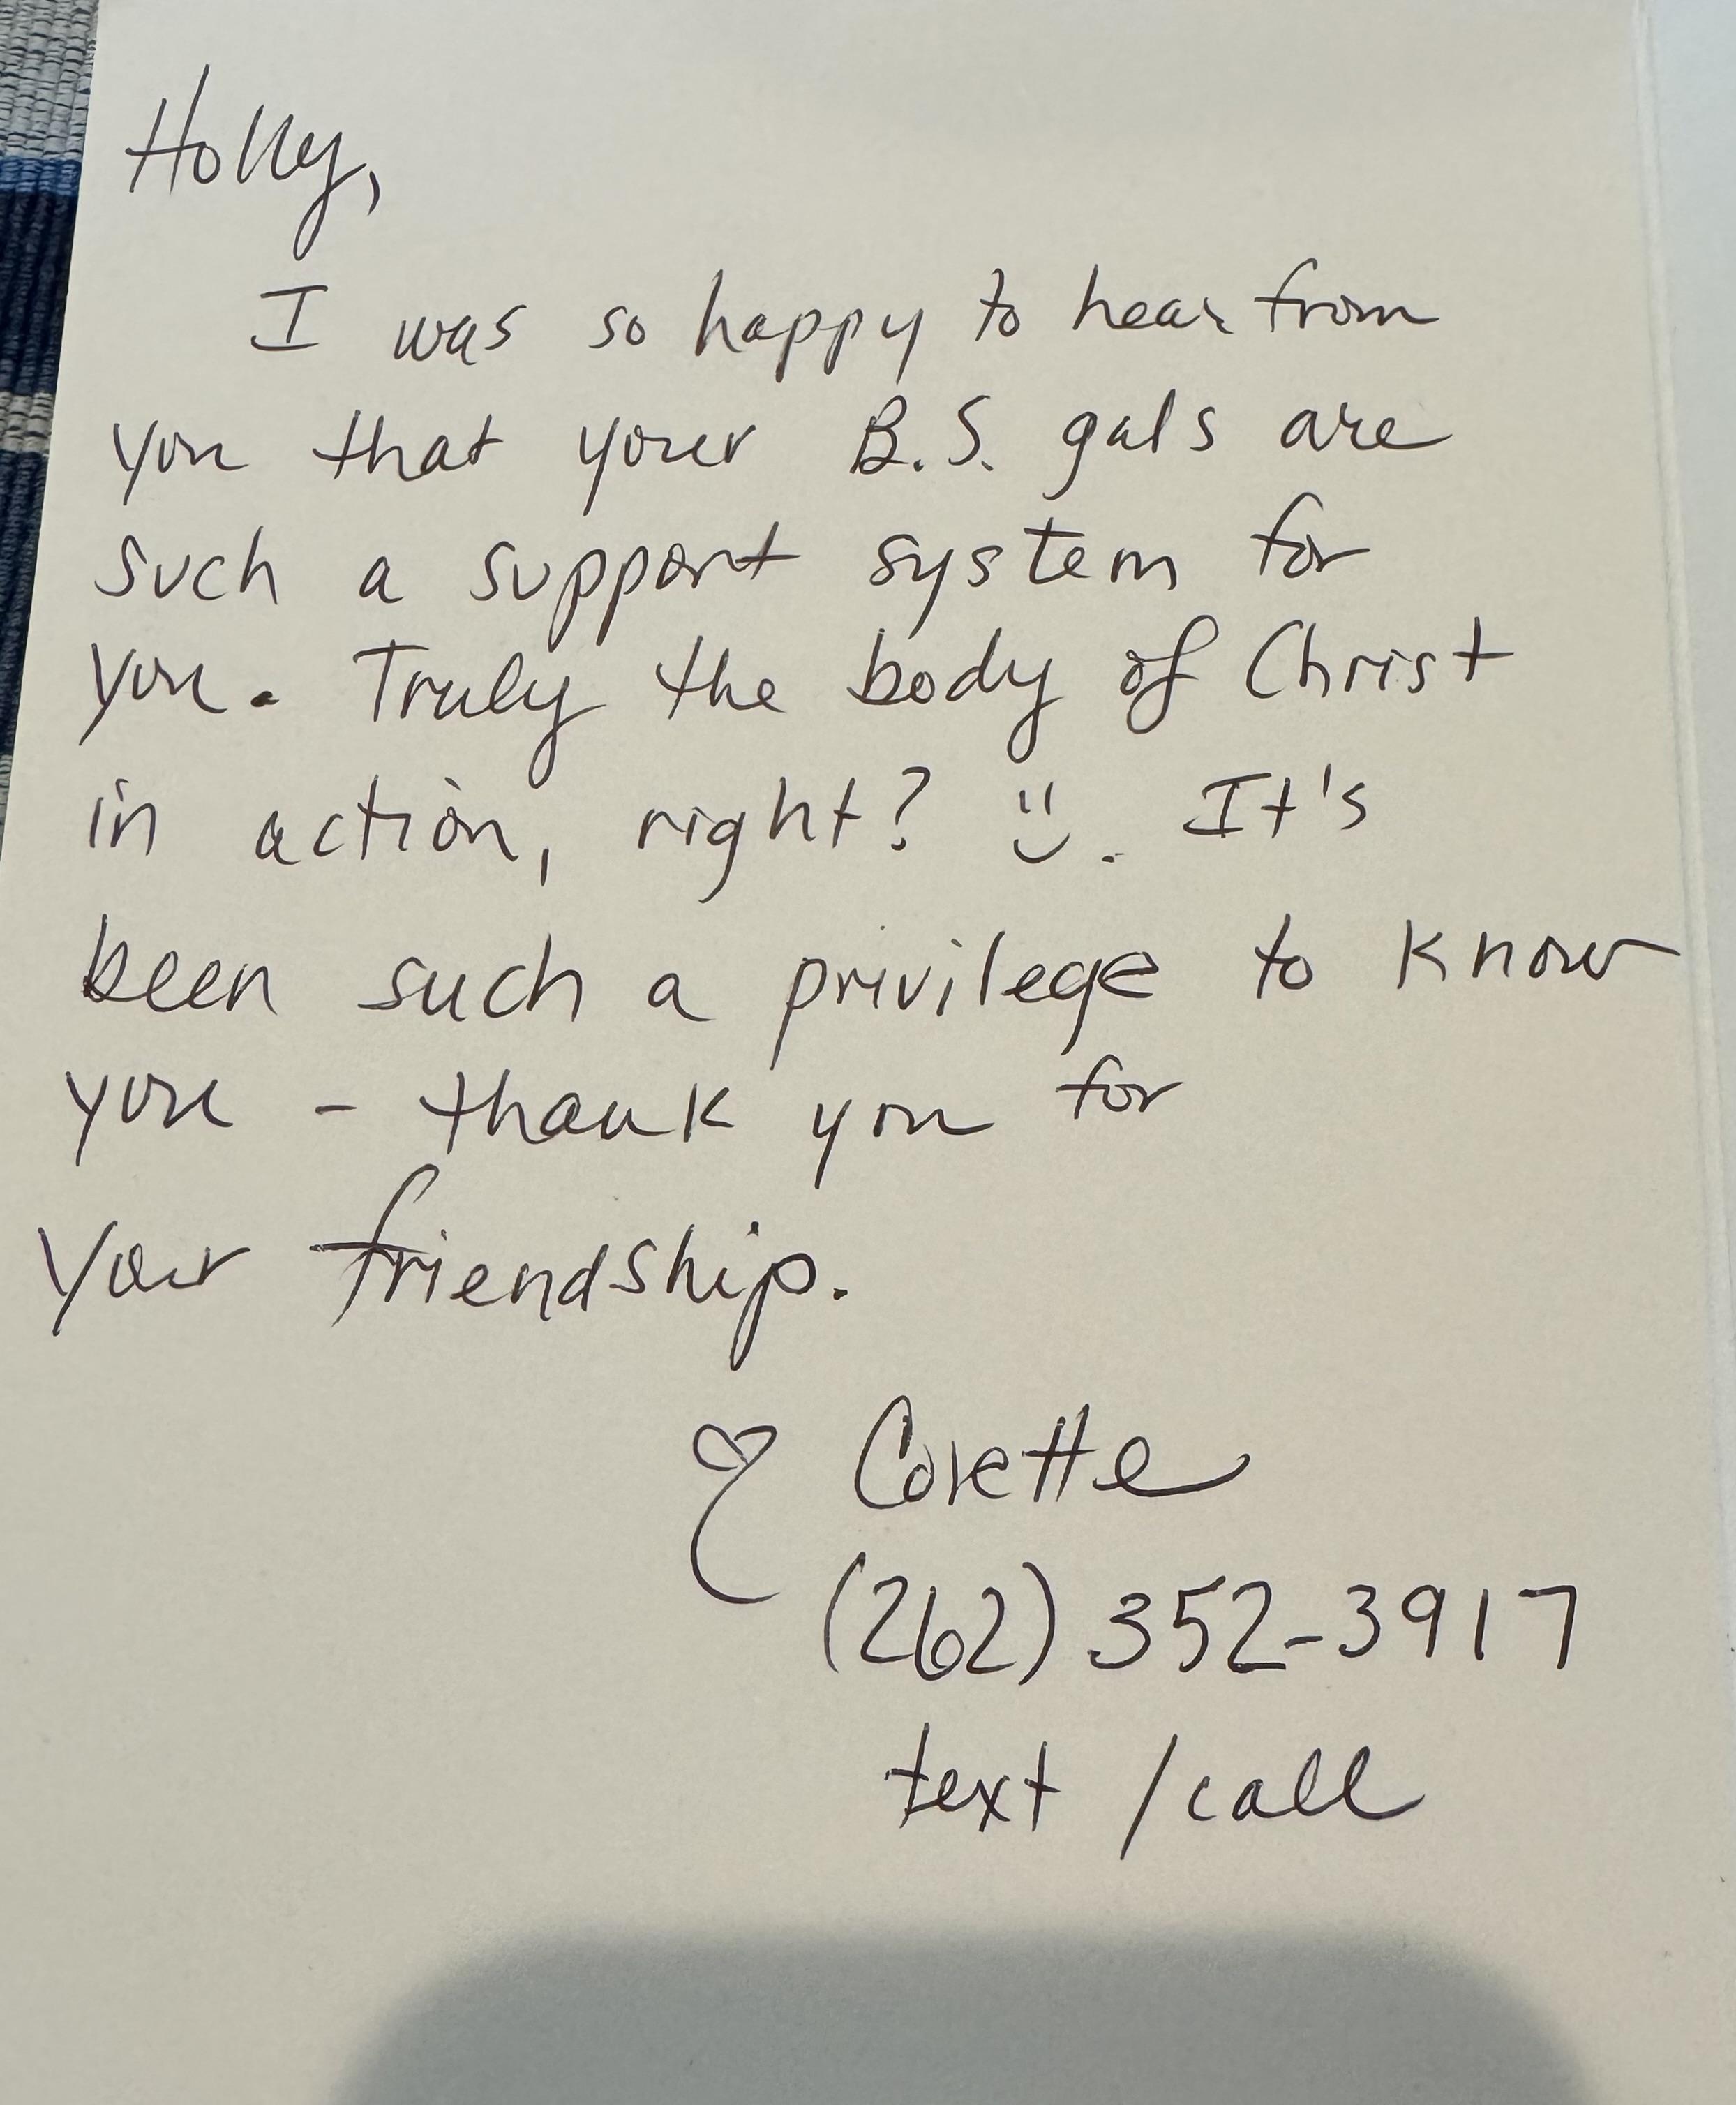 Holly,
I was so happy to hear from
you that your B.S. gals are
such a support system for
you. Truly the body of Christ
in action, right? :). It's
been such a privilege to know
you - thank you for
your friendship.
♡ Corette
(262) 352-3917
text /call